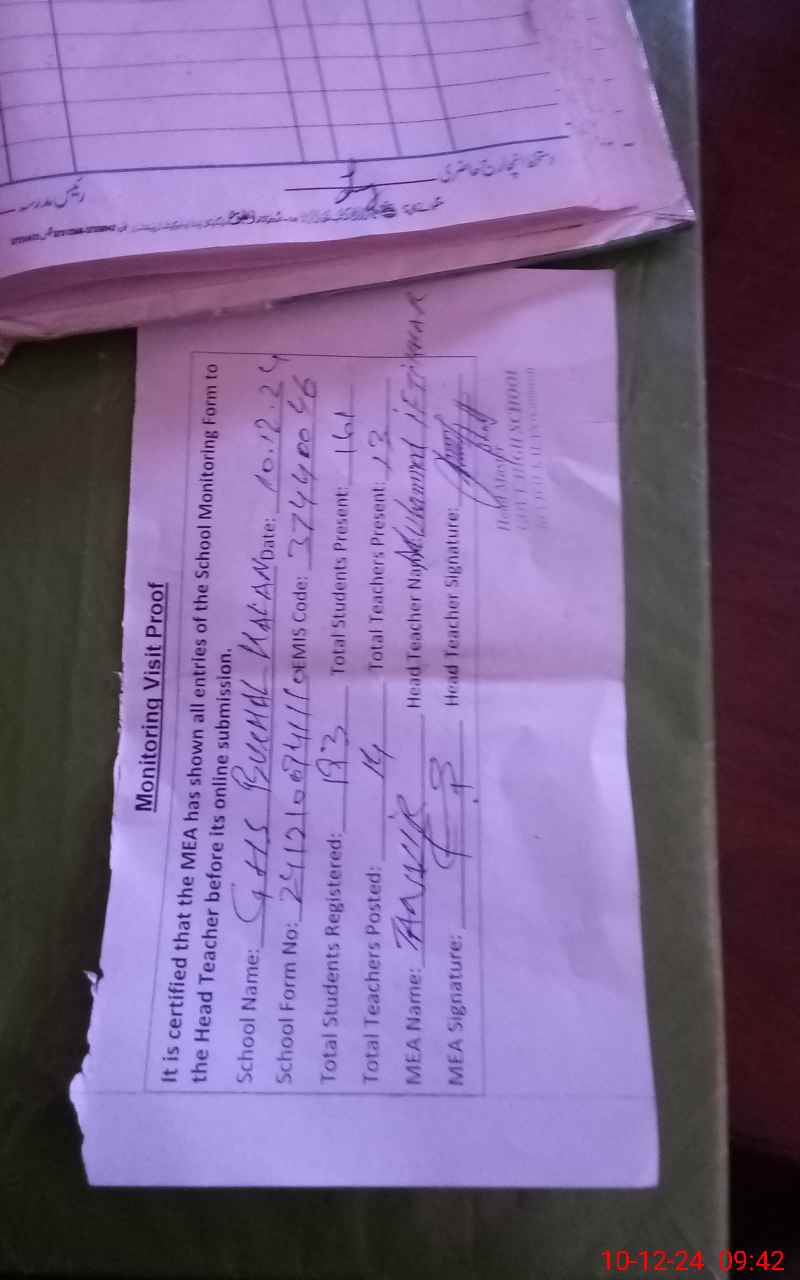 رئیس مدرسہ
دستخط انچارج حاضری
Monitoring Visit Proof
It is certified that the MEA has shown all entries of the School Monitoring Form to
the Head Teacher before its online submission.
School Name: GHS Date: 10.12.24
School Form No: EMIS Code: 37440046
Total Students Registered: 193 Total Students Present: 161
Total Teachers Posted: 14 Total Teachers Present: 13
MEA Name: TANVIR Head Teacher Name: Muhammad IFTIKHAR
MEA Signature: Head Teacher Signature:
Head Master
GOVT HIGH SCHOOL
10-12-24 09:42